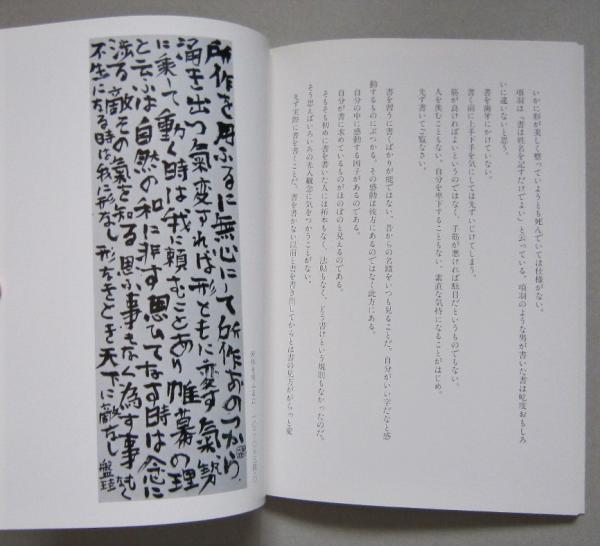 いかに形が美しく整っていようとも死んでいては仕様がない。
項羽は「書は姓名を記すだけでよい」と云っている。項羽のような男が書いた書は屹度おもしろ
いに違いないと思う。
書を歯牙にかけていない。
書く前に上手下手を気にしては先ずいじけてしまう。
筋が良ければよいというのではなく、手筋が悪ければ駄目だというものでもない。
人を羨むこともない。自分を卑下することもない。素直な気持になることがはじめ。
先ず書いてご覧なさい。
書を習うに書くばかりが能ではない。昔からの名蹟をいつも見ることだ。自分がいい字だなと感
動するものにぶつかる。その感動は彼方にあるのではなく此方にある。
自分の中に感動する因子があるのである。
自分が書に求めているものがほのぼのと見えるのである。
そもそも初めに書を書いた人には拓本もなく、法帖もなく、どう書けという規則もなかったのだ。
そう思えばいろいろの先入観念に気をつかうことがない。
先ず実際に書を書くことだ。書を書かない以前と書を書き出してからとは書の見方ががらっと変
所作を用ふるに無心にして所作おのつから
湧き出つ氣変ずれば形ともに変ず氣勢
に乗て動く時は我に頼むことあり帷幕の理
と云ふは自然の和に非す思ひてなす時は念に
渋る敵その氣を知る思ふ事もなく為す事もなく
不生になる時は我に形なし形なきときは天下に敵なし 盤珪
所作を用ふるに